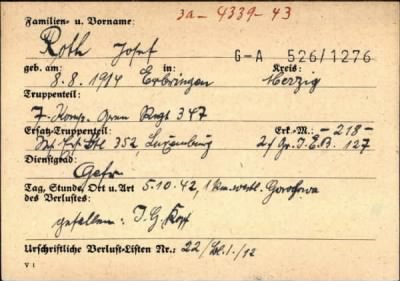 3a - 4339 - 43
Familien- u. Vorname:
Roth Josef
G-A 526/1276
geb. am: in: Kreis:
8.8.1914 Erbringen Merzig
Truppenteil:
7. Komp. Gren Regt 347
Ersatz-Truppenteil: Erk.-M.: - 218 -
352, Luxemburg 2/ Gr. I.E.B. 127
Dienstgrad:
Gefr
Tag, Stunde, Ort u. Art 5.10.42, 1 km westl.
des Verlustes:
gefallen: I.G. Kopf
Urschriftliche Verlust-Listen Nr.: 22/ /12
V 1